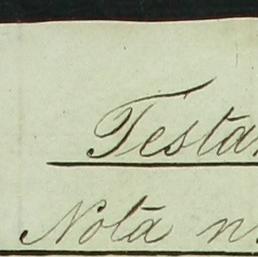 Testa
Nota n